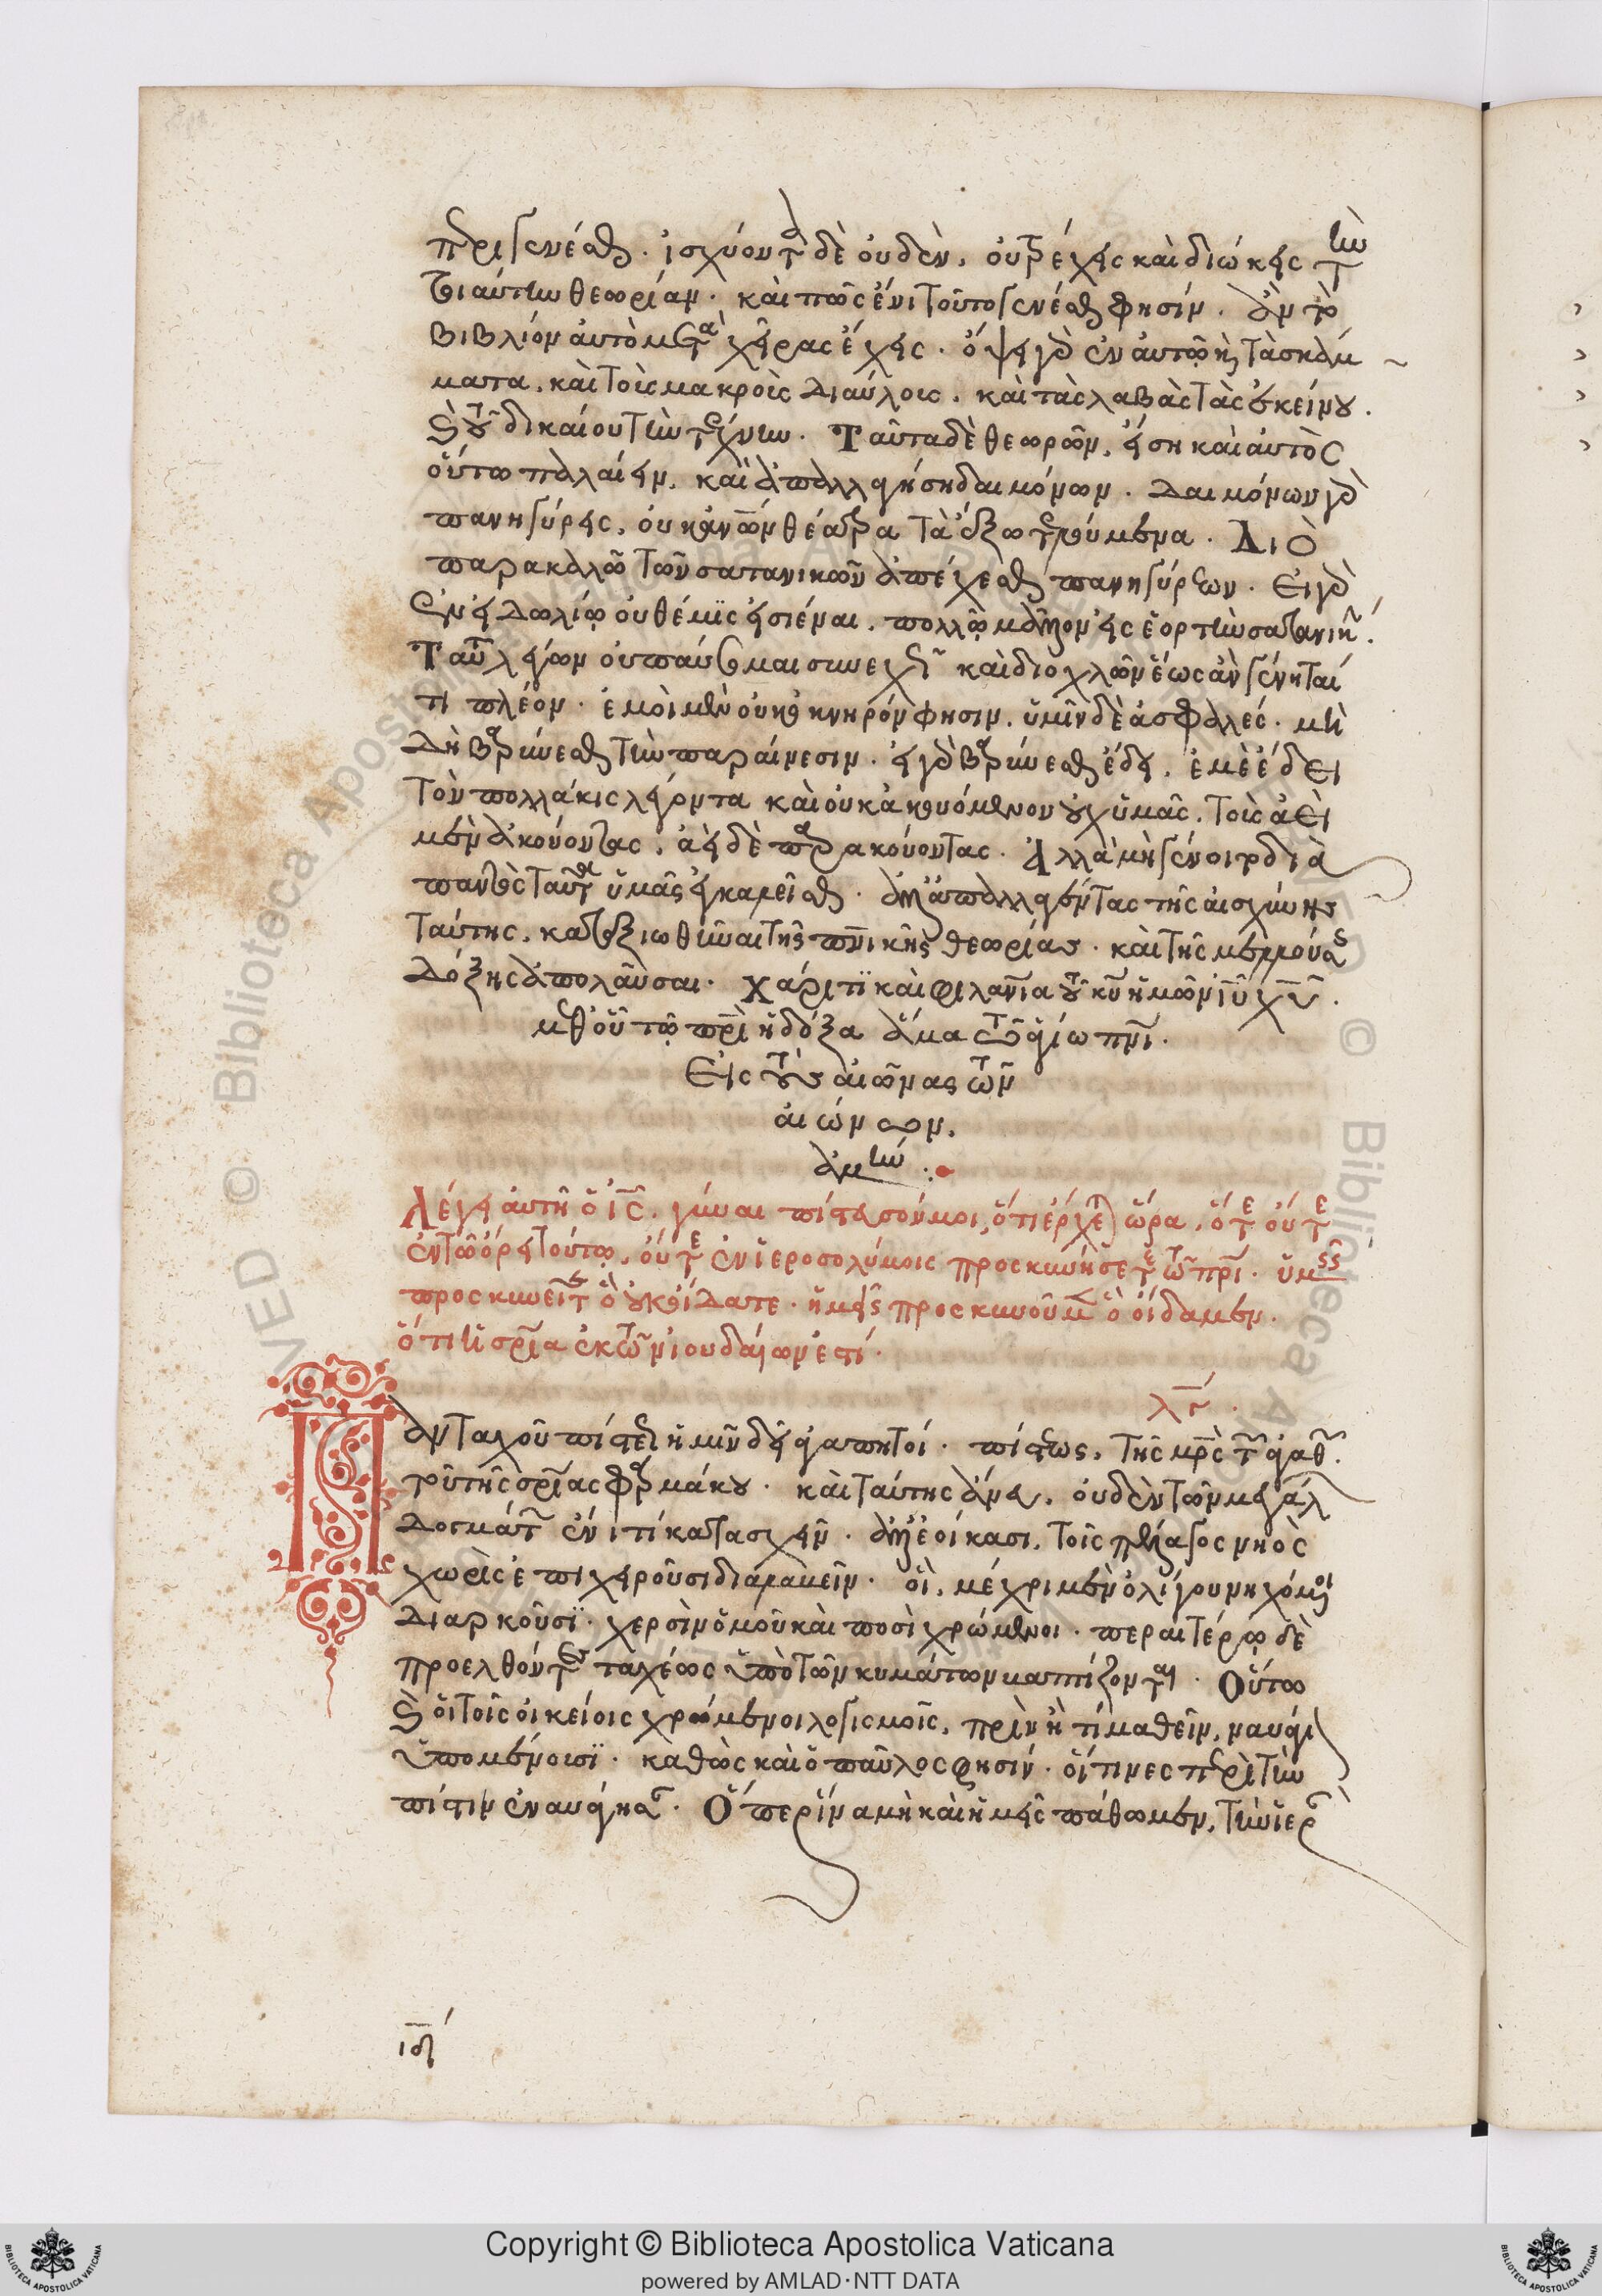 περιγενέσθαι. ἰσχύοντα δὲ οὐδὲν, οὐ τρέχεις καὶ διώκεις τὴν
τοιαύτην θεωρίαν. καὶ πῶς ἔνι τοῦτο γενέσθαι φησίν. ἂν τὸ
βιβλίον αὐτὸ μετὰ χεῖρας ἔχεις. ὄψει γὰρ ἐν αὐτῶ καὶ τὰ σκάμ
ματα, καὶ τοὺς μακροὺς διαύλους, καὶ τὰς λαβὰς τὰς ἐκείνου.
καὶ τοῦ δικαίου τὴν τέχνην. Ταῦτα δὲ θεωρῶν, εἴση καὶ αὐτὸς
οὕτω παλαίειν, καὶ ἀπαλλαγήση δαιμόνων. Δαιμόνων γὰρ
πανηγύρεις, οὐκ ἀνθρώπων θέατρα τὰ ἔξω τελούμενα. Διὸ
παρακαλῶ τῶν σατανικῶν ἀπέχεσθαι πανηγύρεων. Εἰ γὰρ
ἐν εἰδωλίῳ οὐ θέμις εἰσιέναι, πολλῷ μᾶλλον εἰς ἑορτὴν σατανικήν.
Ταῦτα λέγων οὐ παύσομαι συνεχῶς καὶ διοχλῶν ἕως ἂν γένηταί
τι πλέον. ἐμοὶ μὲν οὐκ ὀκνηρόν φησιν, ὑμῖν δὲ ἀσφαλές. μὴ
δὴ βαρύνεσθε τὴν παραίνεσιν. εἰ γὰρ βαρύνεσθαι ἔδει, ἐμὲ ἔδει
τὸν πολλάκις λέγοντα καὶ οὐκ ἀκουόμενον οὐχ ὑμᾶς, τοὺς ἀεὶ
μὲν ἀκούοντας, ἀεὶ δὲ παρακούοντας. Ἀλλὰ μὴ γένοιτο διὰ
παντὸς ταῦτα ὑμᾶς ἐγκαλεῖσθαι. ἀλλ' ἀπαλλαγέντας τῆς αἰσχύνης
ταύτης, καταξιωθῆναι τῆς πνικῆς θεωρίας. καὶ τῆς μελλούσης
δόξης ἀπολαῦσαι. χάριτι καὶ φιλανία τοῦ κυ ἡμῶν ιυ χυ.
μεθ' οὗ τῶ πρὶ ἡ δόξα ἅμα τῶ ἁγίω πνι.
Εἰς τοὺς αἰῶνας τῶν
αἰώνων.
ἀμήν.
Λέγει αὐτῆ ὁ ις. γύναι πίστευσόν μοι, ὅτι ἔρχεται ὥρα, ὅτε οὔτε
ἐν τῶ ὄρει τούτῳ, οὔτε ἐν ἱεροσολύμοις προσκυνήσετε τῶ πρι. ὑμεῖς
προσκυνεῖτε ὃ οὐκ οἴδατε. ἡμεῖς προσκυνοῦμεν ὃ οἴδαμεν.
ὅτι ἡ σρια ἐκ τῶν ἰουδαίων ἐστί.
Πανταχοῦ πίστεως ἡμῖν δεῖ ἀγαπητοί. πίστεως, τῆς μρς τῶν ἀγαθῶν.
τοῦ τῆς σριας φαρμάκου. καὶ ταύτης ἄνευ, οὐδὲν τῶν μεγάλων
δογμάτων ἐνι τί κατασχεῖν. ἀλλ' ἐοίκασι, τοῖς πέλαγος νηὸς
χωρὶς ἐπιχειροῦσι διατεμεῖν. οἳ, μέχρι μὲν ὀλίγου νηχόμενοι
διαρκοῦσι. χερσὶν ὁμοῦ καὶ ποσὶ χρώμενοι. περαιτέρω δὲ
προελθόντες ταχέως ὑπὸ τῶν κυμάτων βαπτίζονται. Οὕτω
καὶ οἱ τοῖς οἰκείοις χρώμενοι λογισμοῖς, πρὶν ἢ τί μαθεῖν, ναυάγιον
ὑπομένουσι. καθὼς καὶ ὁ παῦλος φησίν. οἵτινες περὶ τὴν
πίστιν ἐναυάγησαν. Ὅπερ ἵνα μὴ καὶ ἡμεῖς πάθωμεν, τὴν ἱερὰν
ιδ